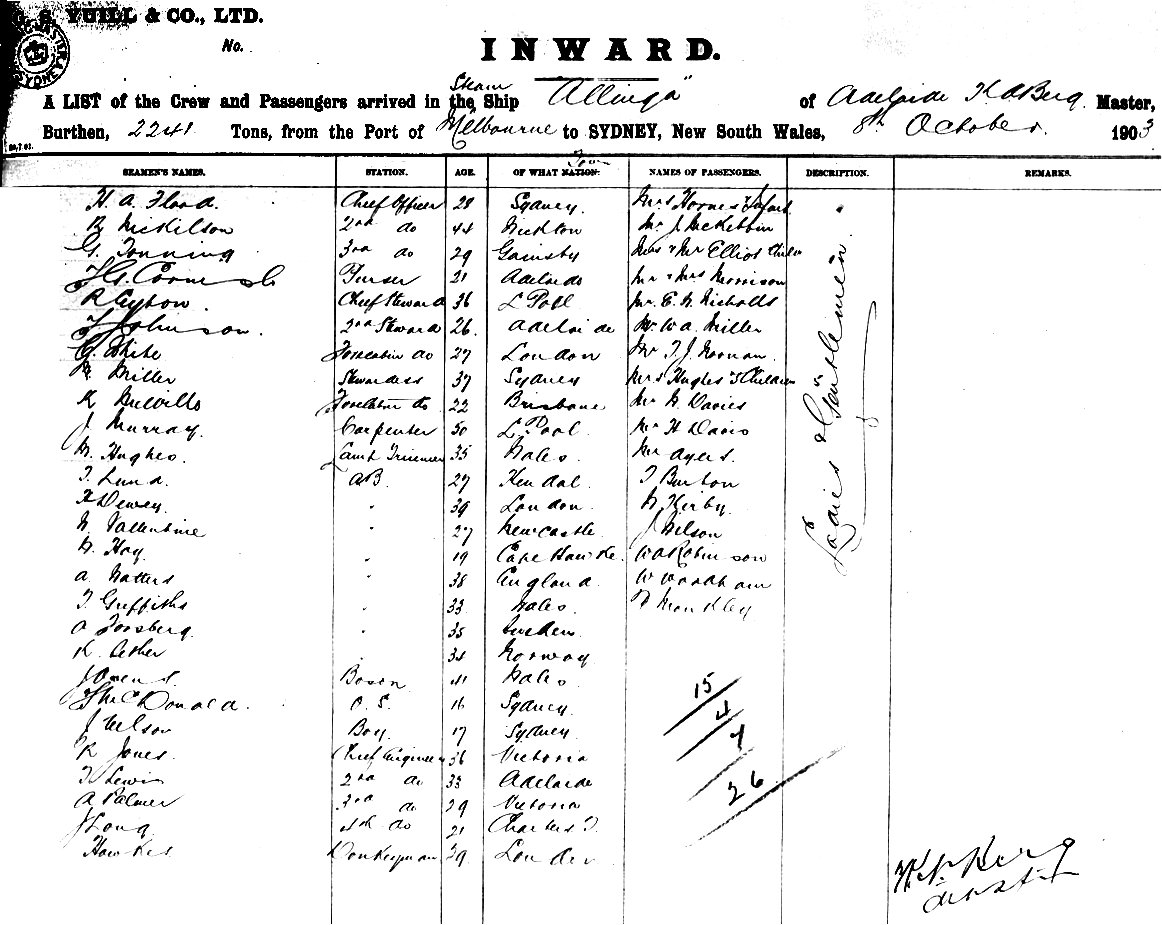 G. S. YUILL & CO., LTD.
No.
INWARD.
Steam
A LIST of the Crew and Passengers arrived in the Ship "Allinga" of Adelaide Master,
Burthen, 2241 Tons, from the Port of Melbourne to SYDNEY, New South Wales, 8th October. 1903
SEAMEN'S NAMES. STATION. AGE. OF WHAT NATION. Town NAMES OF PASSENGERS. DESCRIPTION. REMARKS.
H. A. Flood. Chief Officer 28 Sydney. Mrs Horne & Infant "
2nd do 44 Mr J McKebbin
G. 3rd do 29 Mrs & Mr Elliot
Purser 21 Adelaide Mr & Mrs Morrison
Chief Steward 36 L Pool Mr. E. W. Nicholls
Johnson. 2nd Steward 26. Adelaide Mr W A. Miller
G. White Forecabin do 27 London Mr T. J. Noonan.
Miller Stewardess 37 Sydney Mrs Hughes & Children
Forecabin do 22 Brisbane Mr W Davies
J Murray. Carpenter 50 L. Pool. Mr H Davis
W. Hughes. Lamp Trimmer 35 Wales. Mr Ayers.
T. Lund. AB. 27 Kendal. T Burton
Dewey. " 39 London. W Kirby.
W Vallentine " 27 Newcastle. J Wilson
W. Hay. " 19 Cape Hawke. W A Robinson
A. Watters " 38 England. W Woodham
T. Griffiths " 33 Wales.
A Forsberg. " 35 Sweden.
" 34 Norway
J Owens. Bosun 41 Wales.
McDonald. O. S. 16 Sydney.
J Wilson Boy. 17 Sydney.
R Jones. Chief Engineer 36 Victoria
Lewis 2nd do 33 Adelaide
A Palmer 3rd do 29 Victoria
J Long 4th do 21 Charters T.
Hawkes. Donkeyman 39 London.
Ladies & Gentlemen
15
4
7
26
Berg
Master